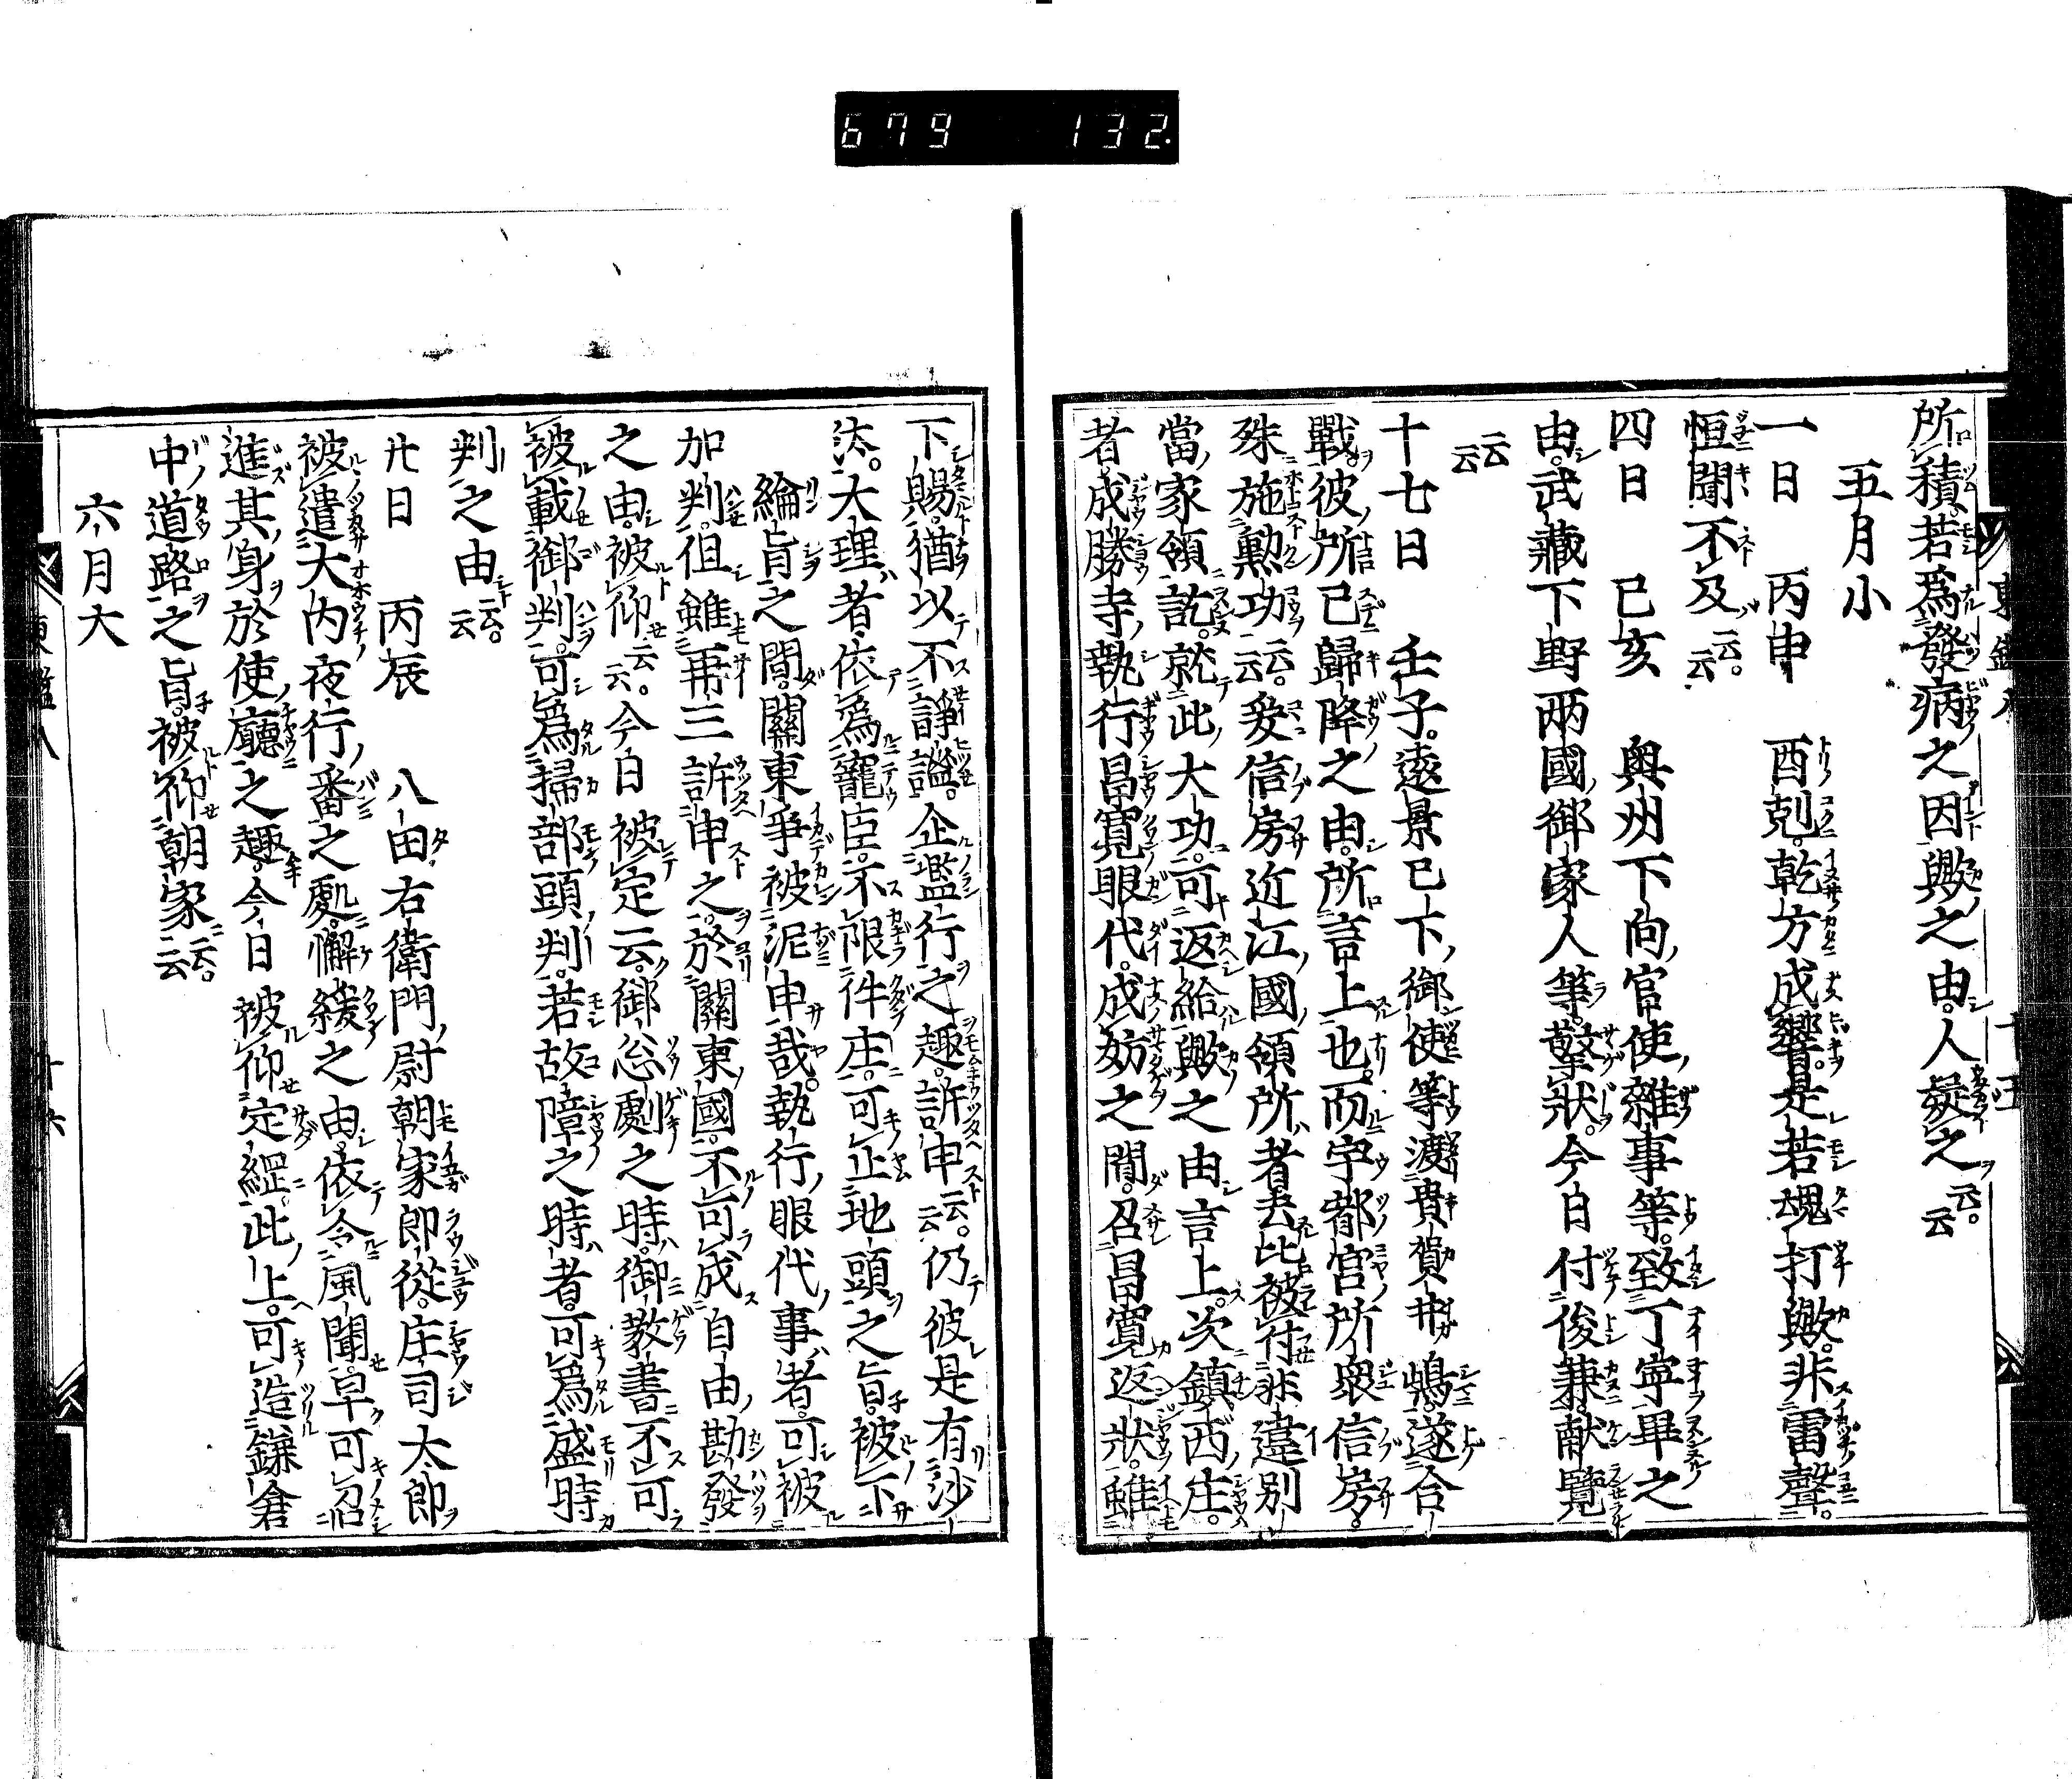 679 132
所積。若爲發病之因歟之由。人疑之云云。
五月小
一日 丙申 酉剋。乾方成響。是若魂打歟。非雷聲。
恒聞不及云云。
四日 已亥 奥州下向官使雜事等。致丁寧畢之
由。武藏下野兩國御家人等。擎狀。今日付俊兼。献覽
云云
十七日 壬子。遠景已下御使等渡貴賀井嶋。遂合
戰。彼所已歸降之由。所言上也。而宇都宮所衆信房。
殊施勲功云云。爰信房近江國領所者去比被付非違別
當家領訖。就此大功。可返給歟之由言上。次鎮西庄。
者成勝寺執行昌寛眼代。成妨之間。召昌寛返狀。雖
下賜。猶以不諍謐。企濫行之趣。訴申云云。仍彼是有沙
汰。大理者依爲寵臣。不限件庄。可止地頭之旨。被下
綸旨之間。關東爭被泥申哉。執行眼代事者。可被
加判。但雖再三訴申之。於關東國。不可成自由勘發
之由。被仰云云。今日被定云。御忩劇之時。御教書不可
被載御判。可爲掃部頭判。若故障之時者。可爲盛時
判之由云云。
廿日 丙辰 八田右衛門尉朝家郎從。庄司太郎
被遣大内夜行番之處。懈緩之由。依令風聞。早可召
進其身於使廳之趣。今日被仰定經。此上。可造鎌倉
中道路之旨。被仰朝家云云。
六月大